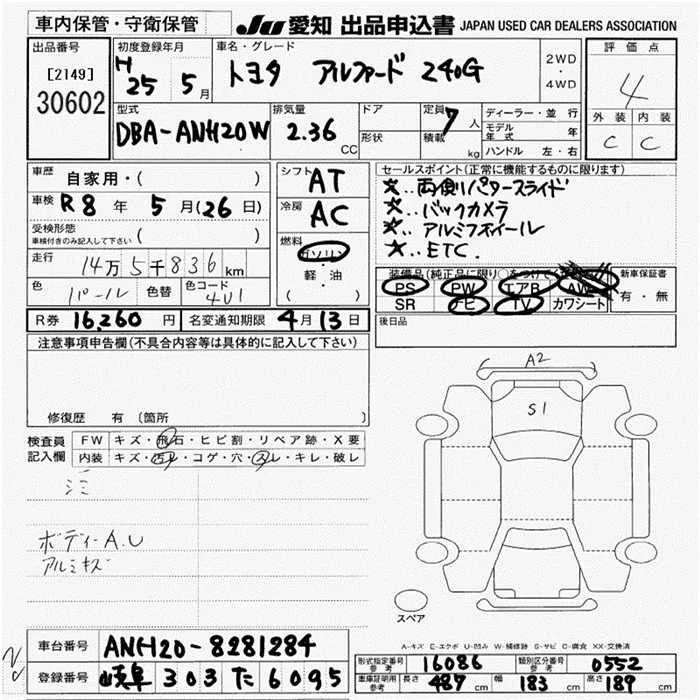 車内保管・守衛保管
JU 愛知 出品申込書 JAPAN USED CAR DEALERS ASSOCIATION
出品番号
[2149]
30602
初度登録年月
H 25 5月
車名・グレード
トヨタ アルファード 240G
2WD
・
4WD
評価点
4
外装 内装
C C
型式
DBA-ANH20W
排気量
2.36 CC
ドア
形状
定員 7 人
積載 kg
ディーラー・並行
モデル年式 年
ハンドル 左・右
車歴 自家用・( )
車検 R8 年 5 月(26日)
受検形態
車検付きのみ記入して下さい ( )
走行 14万5千836km
色 パール 色替 色コード 4V1
シフト AT
冷房 AC
燃料
ガソリン
・
軽・油
( )
セールスポイント(正常に機能するものに限ります)
☆‥両側パワースライド
☆‥バックカメラ
☆‥アルミホイール
☆‥ETC.
装備品(純正品に限り○をつけてください)
PS PW エアB AW
SR ナビ TV カワシート
新車保証書
有・無
後日品
R券 16,260 円 名変通知期限 4月13日
注意事項申告欄(不具合内容等は具体的に記入して下さい)
修復歴 有 〔箇所
検査員記入欄
FW キズ・飛石・ヒビ割・リペア跡・X要
内装 キズ・汚レ・コゲ・穴・スレ・キレ・破レ
シミ
ボディーA.U
アルミキズ
A2
S1
スペア
A-キズ E-エクボ U-凹み W-補修跡 S-サビ C-腐食 XX-交換済
車台番号 ANH20-8281284
登録番号 岐阜 303 た 6095
形式指定番号 参考 16086 類別区分番号 参考 0552
車庫証明用 参考 長さ 487 cm 幅 183 cm 高さ 189 cm